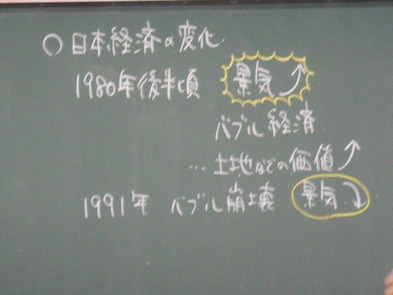 ○日本経済の変化
1980年後半頃 景気↗
バブル経済
…土地などの価値↗
1991年 バブル崩壊 景気↘